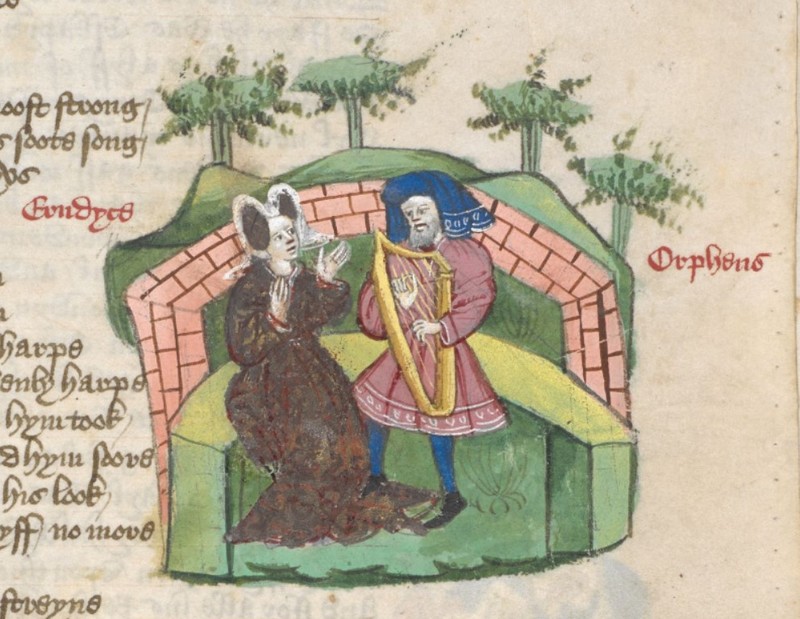 ooft strong
s soote song
Erudyce
Orpheus
harpe
enly harpe
hym took
d hym soore
his look
yff no more
streyne